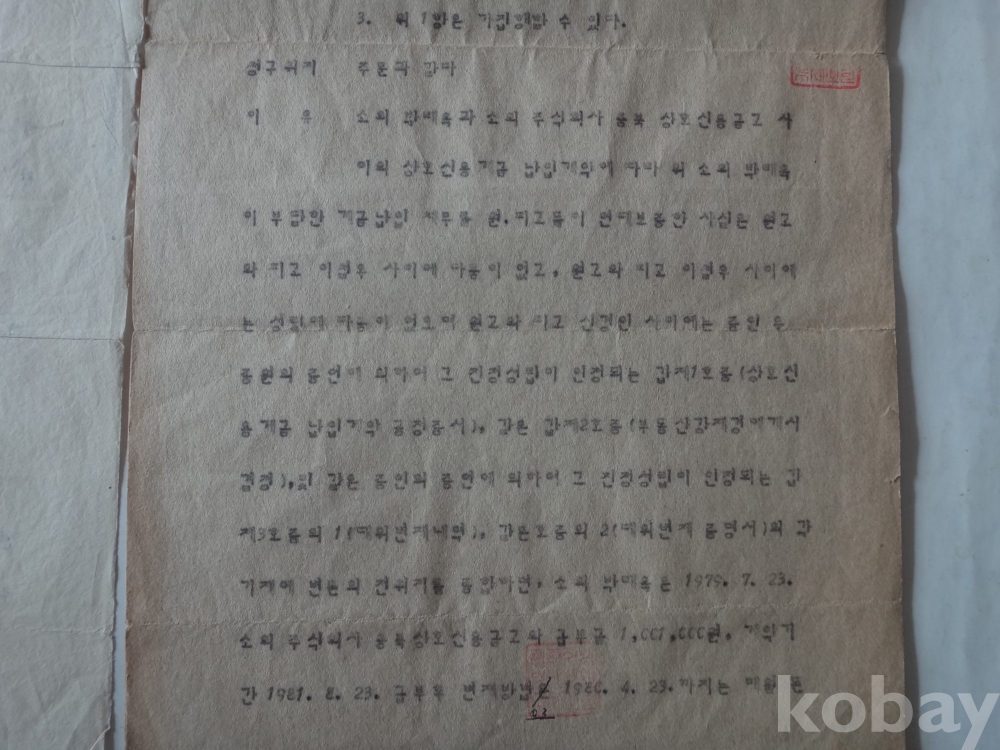 3. 위 1항은 가집행할 수 있다.
청구취지 주문과 같다
이 유 소외 박태옥과 소외 주식회사 충북 상호신용금고 사
이의 상호신용계금 납입계약에 따라 위 소외 박태옥
이 부담한 계금납입 채무를 원.피고들이 연대보증한 사실은 원고
와 피고 이 사이에 다툼이 없고, 원고와 피고 이 사이에
는 성립에 다툼이 없으며 원고와 피고 신 사이에는 증인
의 증언에 의하여 그 진정성립이 인정되는 갑제1호증(상호신
용계금 납입계약 공정증서), 같은 갑제2호증(부동산강제경매개시
결정),및 같은 증인의 증언에 의하여 그 진정성립이 인정되는 갑
제3호증의 1(대위변제내역), 같은호증의 2(대위변제 증명서)의 각
기재에 변론의 전취지를 종합하면, 소외 박태옥은 1979. 7. 23.
소외 주식회사 충북상호신용금고와 급부금 1,000,000원, 계약기
간 1981. 8. 23. 급부후 변제방법은 1980. 4. 23.까지는 매월
kobay